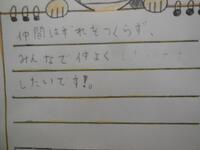 仲間はずれをつくらず、
みんなで仲よく
したいです!。